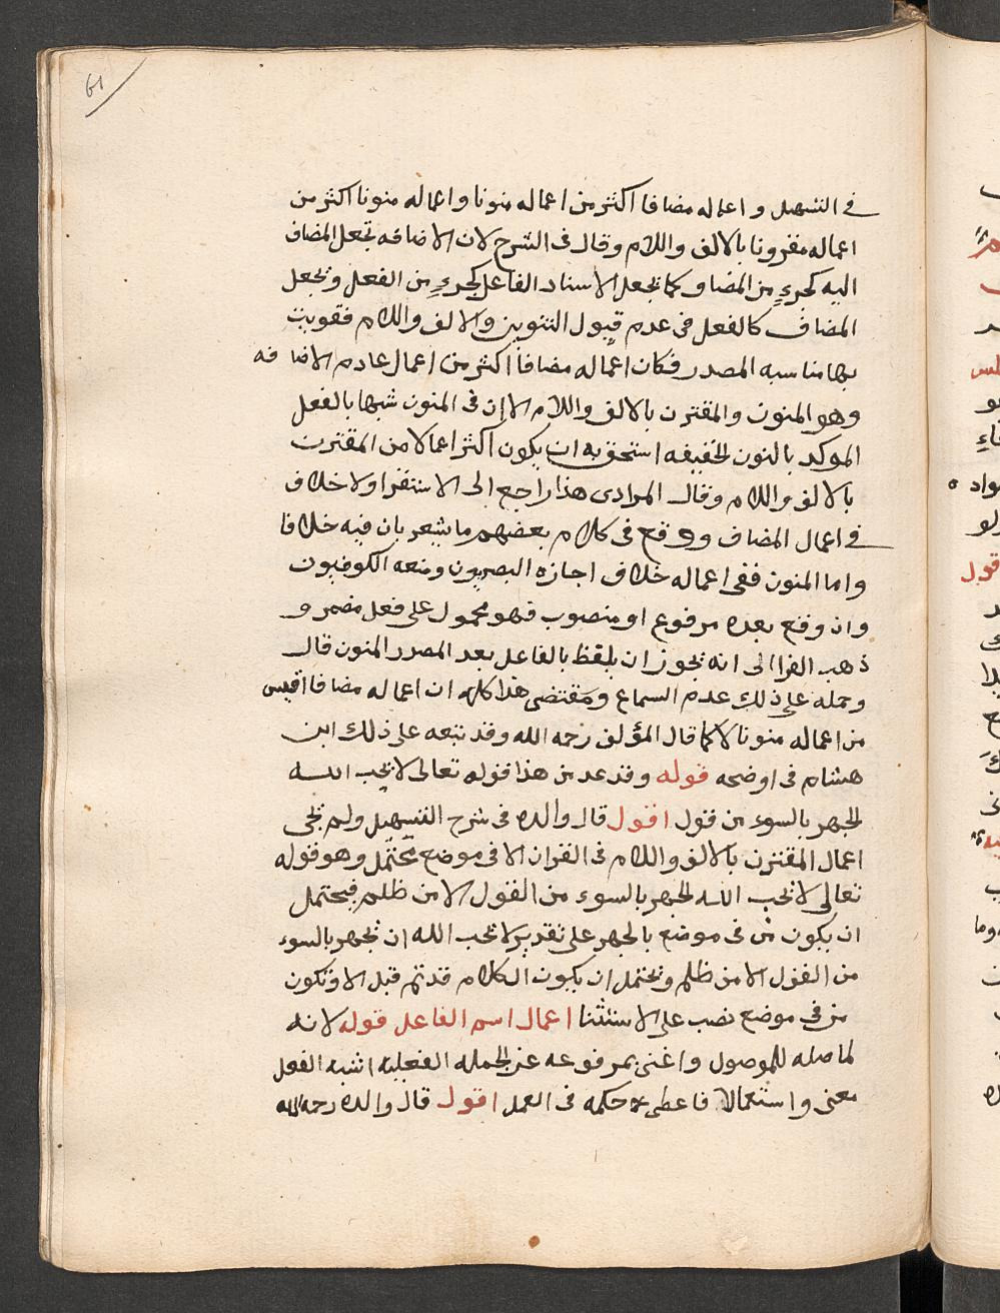 61
في التسهيل واعماله مضافا اكثر من اعماله منونا واعماله منونا اكثر من
اعماله مقرونا بالالف واللام وقال في الشرح لان الاضافه تجعل المضاف
اليه كجزءٍ من المضاف كما يجعل الاسناد الفاعل كجزءٍ من الفعل وتجعل
المضاف كالفعل في عدم قبول التنوين والالف واللام فقويت
بها مناسبه المصدر فكان اعماله مضافا اكثر من اعمال عادم الاضافه
وهو المنون والمقترن بالالف واللام الا ان في المنون شبها بالفعل
الموكد بالنون الخفيفه استحق به ان يكون اكثر اعمالا من المقترن
بالالف واللام وقال المرادى هذا راجع الى الاستقرا ولا خلاف
في اعمال المضاف ووقع في كلام بعضهم ما يشعر بان فيه خلافا
واما المنون ففي اعماله خلاف اجازه البصريون ومنعه الكوفيون
وان وقع بعده مرفوع او منصوب فهو محمول على فعل مضمر و
ذهب الفرا الى انه يجوز ان يلفظ بالفاعل بعد المصدر المنون قال
وحمله على ذلك عدم السماع ومقتضى هذا كله ان اعماله مضافا اقيس
من اعماله منونا لا كما قال المؤلف رحمه الله وقد تبعه على ذلك ابن
هشام في اوضحه قوله وقد عد من هذا قوله تعالى لا يحب الله
الجهر بالسوء من القول اقول قال والده في شرح التسهيل ولم يجى
اعمال المقترن بالالف واللام في القران الا في موضع محتمل وهو قوله
تعالى لا يحب الله الجهر بالسوء من القول الا من ظلم فيحتمل
ان يكون من في موضع بالجهر على تقدير لا يحب الله ان يجهر بالسوء
من القول الا من ظلم ويحتمل ان يكون الكلام قد تم قبل الا وتكون
من في موضع نصب على الاستثنا اعمال اسم الفاعل قوله لانه
لما صله للموصول واغنى بمرفوعه عن الجمله الفعليه اشبه الفعل
معنى واستعمالا فاعطى حكمه في العمل اقول قال والده رحمه الله